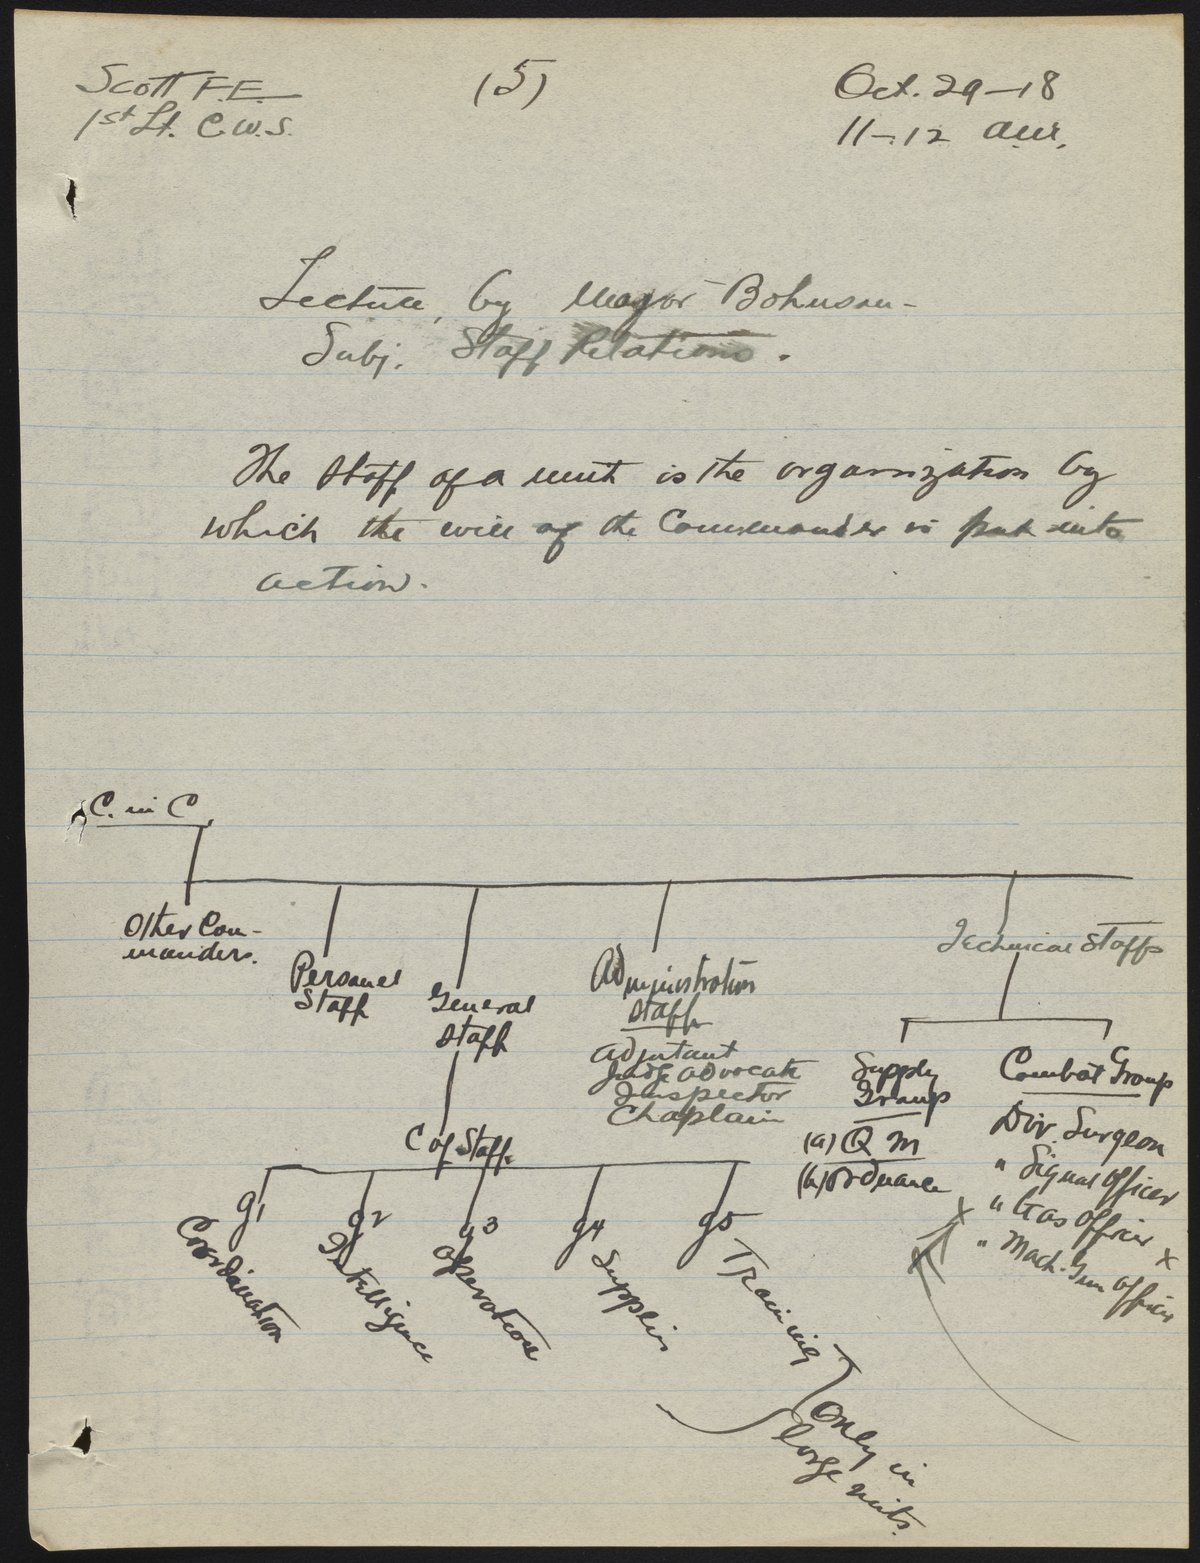 Scott F.E.
1st Lt. C.W.S.
(5)
Oct. 29-18
11-12 am.
Lecture, by Major Bohnson-
Subj. Staff Relations.
The Staff of a unit is the organization by
which the will of the Commander is put into
action.
C. in C.
Other Com-
manders.
Personel
Staff
General
Staff
Administration
Staff
Adjutant
Judge advocate
Inspector
Chaplain
Technical Staffs
Supply
Group
(a) Q M
(b) Ordnance
Combat Group
Div. Surgeon
" Signal Officer
x " Gas Officer x
" Mach. Gun Officer
C of Staff.
g1
Coordination
g2
Intelligence
g3
Operations
g4
Supplies
g5
Training
Only in
large units.